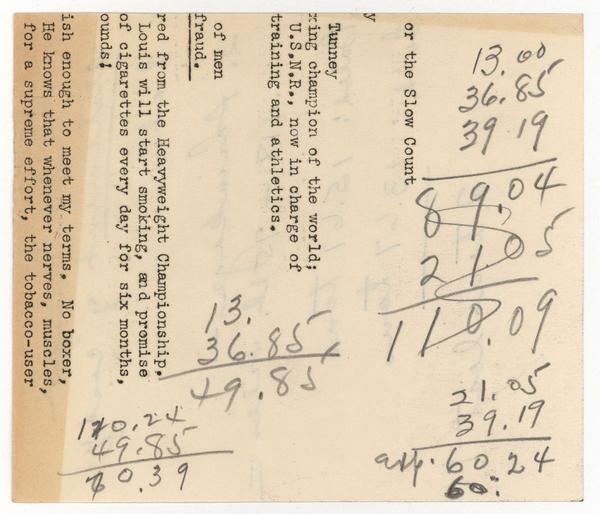 or the Slow Count
y
Tunney
xing champion of the world;
U.S.N.R., now in charge of
training and athletics.
of men
fraud.
red from the Heavyweight Championship,
Louis will start smoking, and promise
of cigarettes every day for six months,
ounds!
ish enough to meet my terms. No boxer,
He knows that whenever nerves, muscles,
for a supreme effort, the tobacco-user
13.00
36.85
39 19
89.04
21 05
110.09
13.
36.85
49.85
21.05
39.19
60 24
60.
110.24
49.85
60.39